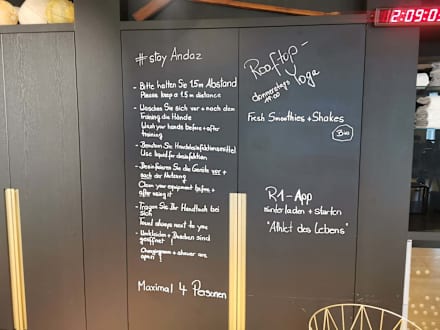 #stay Andaz
- Bitte halten Sie 1.5m Abstand
Please keep a 1.5 m distance
- Waschen Sie sich vor + nach dem
Training die Hände
Wash your hands before + after
training
- Benutzen Sie Handdesinfektionsmittel
Use liquid for desinfektion
- Desinfizieren Sie die Geräte vor +
nach der Nutzung
Clean your equipment before +
after using it
- Tragen Sie Ihr Handtuch bei
sich
Towel always next to you
- Umkleiden + Duschen sind
geöffnet!
Changingroom + shower are
open!
Maximal 4 Personen
Rooftop-
Yoga
donnerstags
Fresh Smoothies + Shakes
Bio
R1-App
runterladen + starten
"Athlet des Lebens"
2:09:0